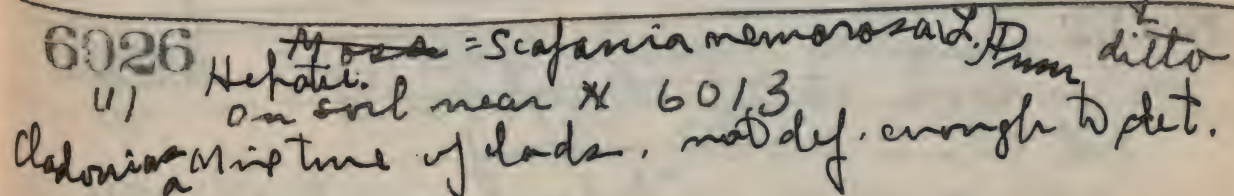 6026 Moss = Scapania nemorosa (L.) Dum. ditto
Hepatic.
(1) on soil near # 6013
Cladonias a Mixture of Clads. not def. enough to det.